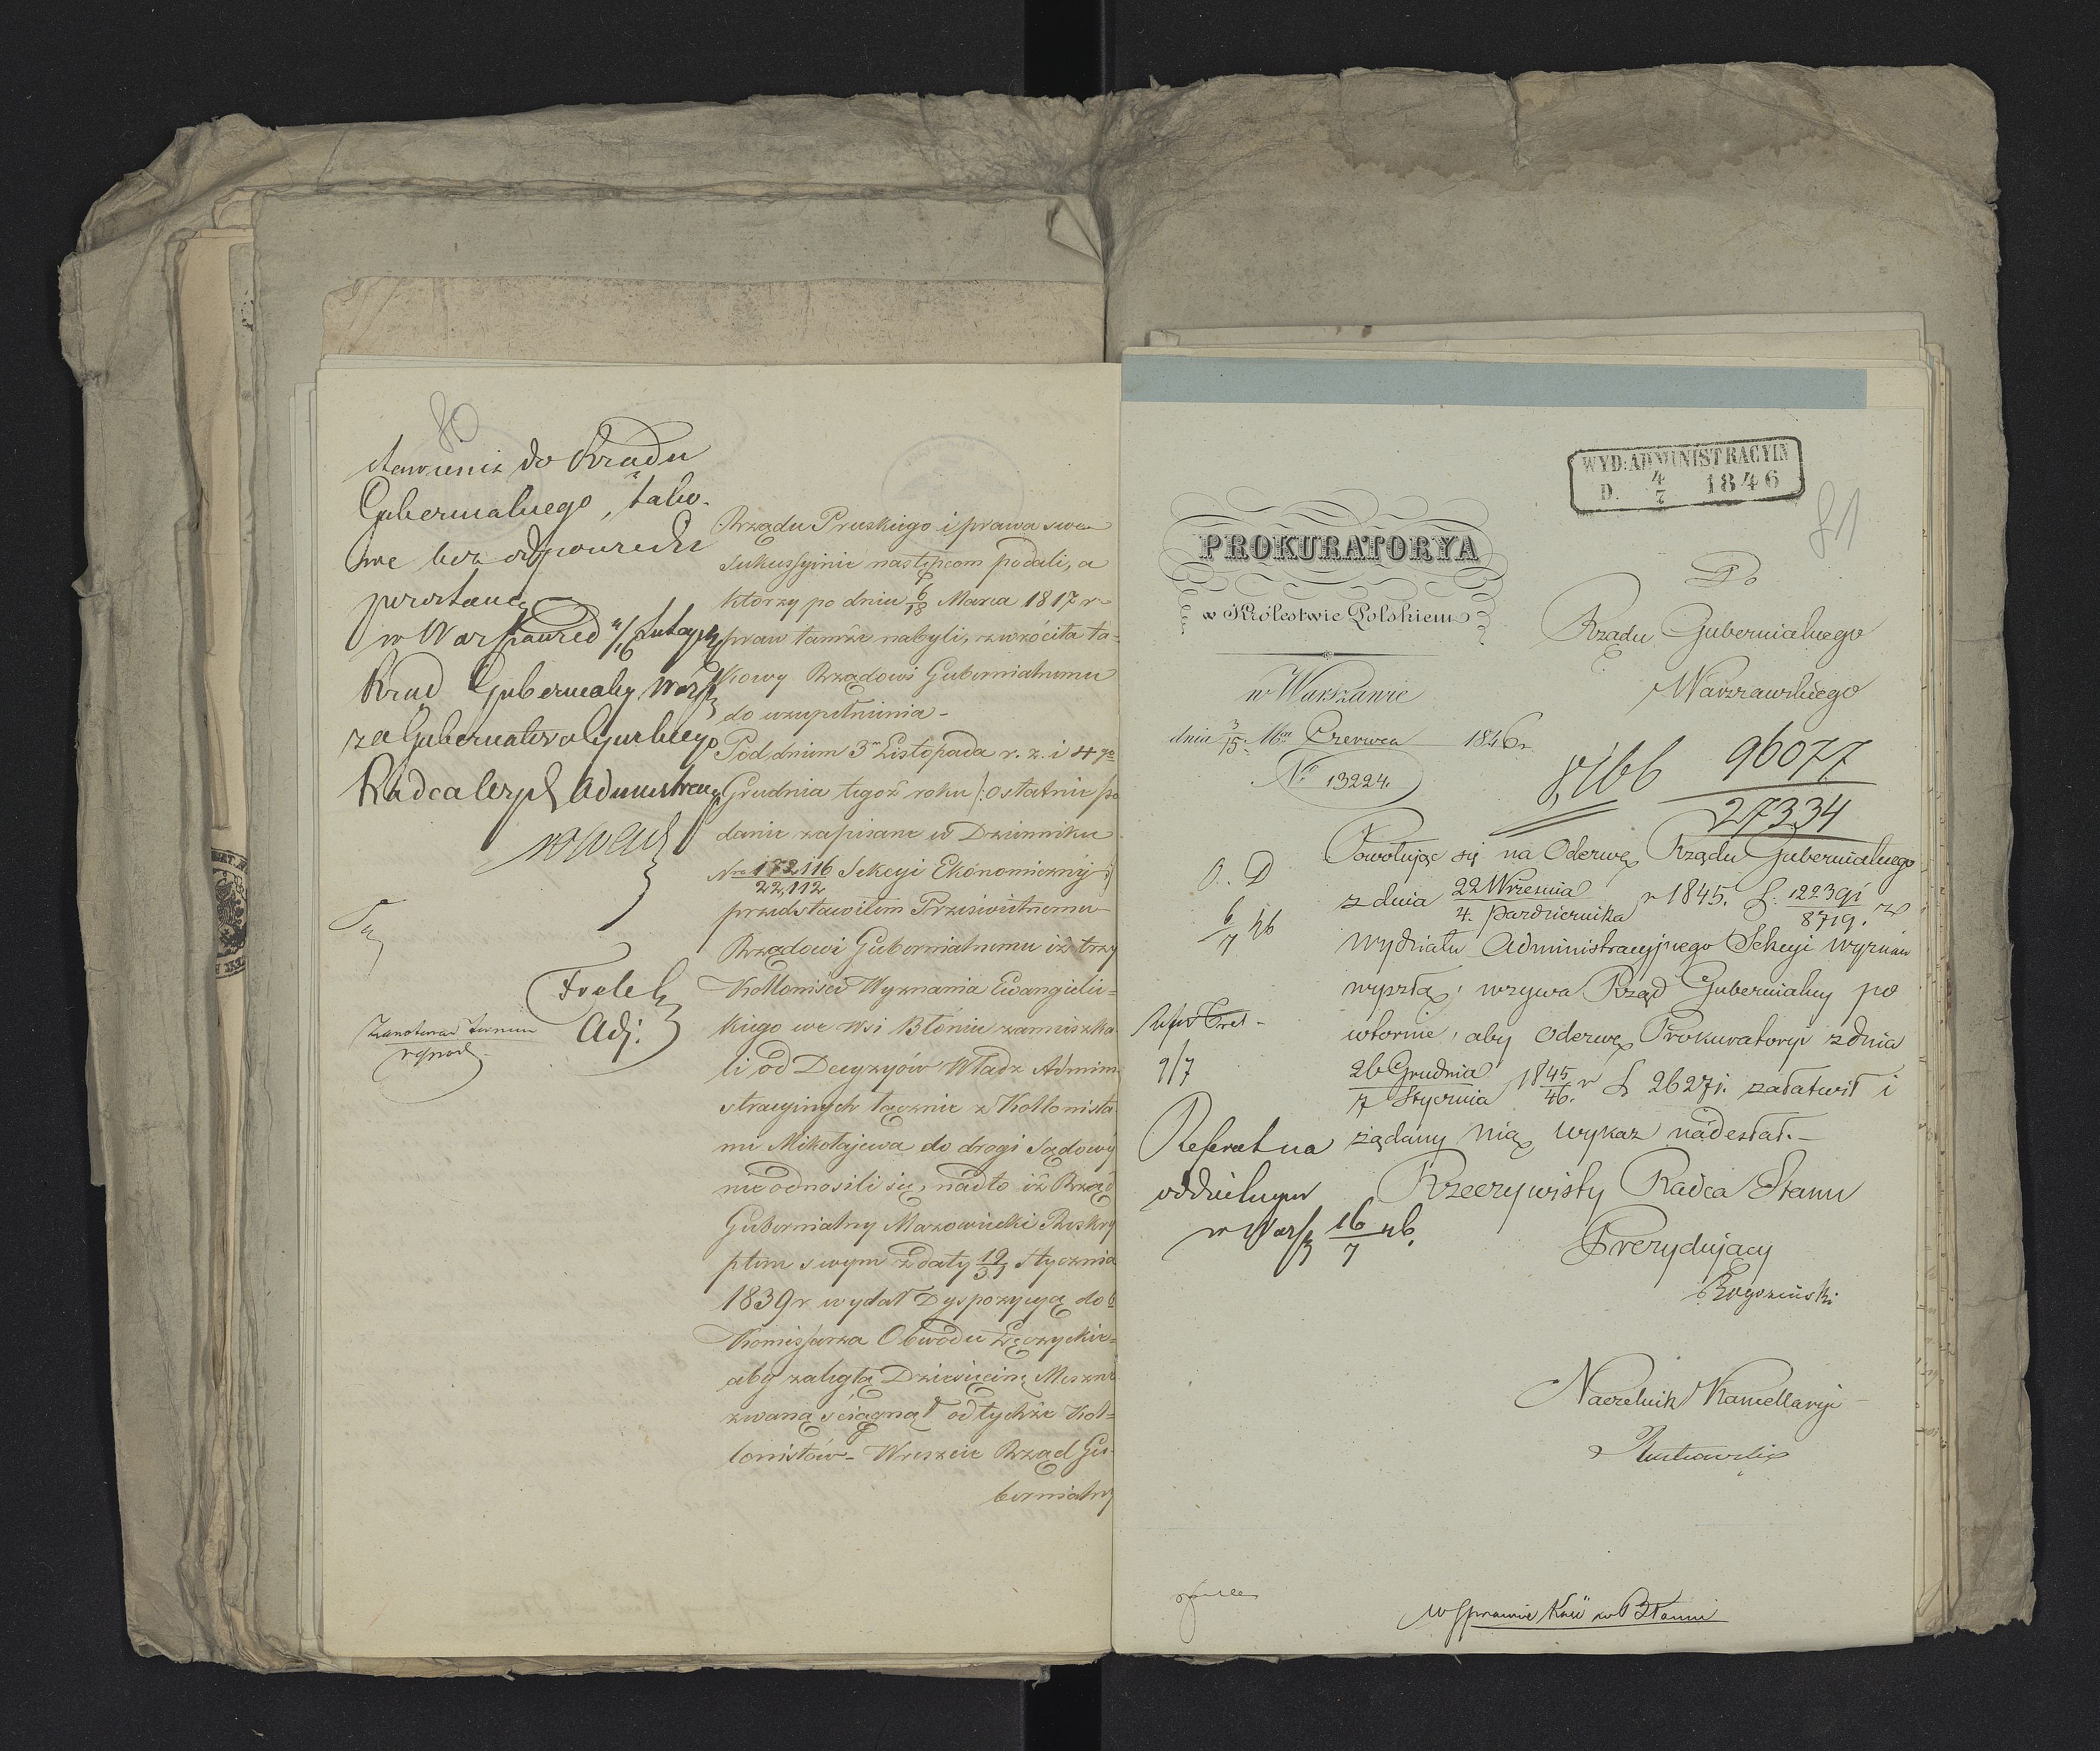 80
stawienia do Rządu
Gubernialnego, tako-
we bez odpowiedzi
Rząd Gubernialny Warsz
za Gubernatora Cywilnego
Radca
Adj:
Zanotować termin
Rządu Pruskiego i prawa swe
Sukcessyinie następcom podali, a
którzy po dniu 6/18 Marca 1817 r
praw tamże nabyli, zwróciła ta-
kowy Rządowi Gubernialnemu
do uzupełnienia -
Pod dniem 3m Listopada r. z. i 4go
Grudnia tegoż roku /: ostatnie po
danie zapisane w Dzienniku
Nro 172116/22,112 Sekcyi Ekonomicznéj :/
przedstawiłem Prześwietnemu
Rządowi Gubernialnemu iż trzy
Kolloniści Wyznania Ewangielic-
kiego we wsi Błóniu zamieszka
li od Decyzyów Władz Admini
stracyinych łącznie z Kollonista
mi Mikołajewa do drogi Sądowy
nie odnosili się, nadto iż Rząd
Gubernialny Mazowiecki Reskry
ptem swym z daty 19/31 Stycznia
1839 r. wydał Dyspozycyą do b
Komissarza Obwodu Łęczyckie-
aby zaległą Dziesięcinę Meszne
zwaną ściągnął od tychże Kol-
lonistów - Wreszcie Rząd Gu-
bernialny
WYD: ADMINISTRACYJN
D. 4/7 1846
81
PROKURATORYA
w Królestwie Polskiem
w Warszawie
dnia 3/15 Mca Czerwca 1846 r.
No 13224.
Do
Rządu Gubernialnego
Warszawskiego
96077
27334
O. D
6/7 46
Powołując się na Odezwę Rządu Gubernialnego
z dnia 22 Września/4. Października r 1845. L. 122391/8719. z
wydziału Administracyjnego Sekcyi Wyznań
wyszłą, wzywa Rząd Gubernialny po
wtórnie, aby Odezwę Prokuratoryi z dnia
26 Grudnia/7 Stycznia 1845/46. r L 26271. załatwił i
żądany nią wykaz nadesłał. -
9/7
Referat na
oddzielnym
w Warsz 16/7 46.
Rzeczywisty Radca Stanu
Prezydujący
Rogoziński
Naczelnik Kancellaryi
W Sprawie Kol w Błoniu